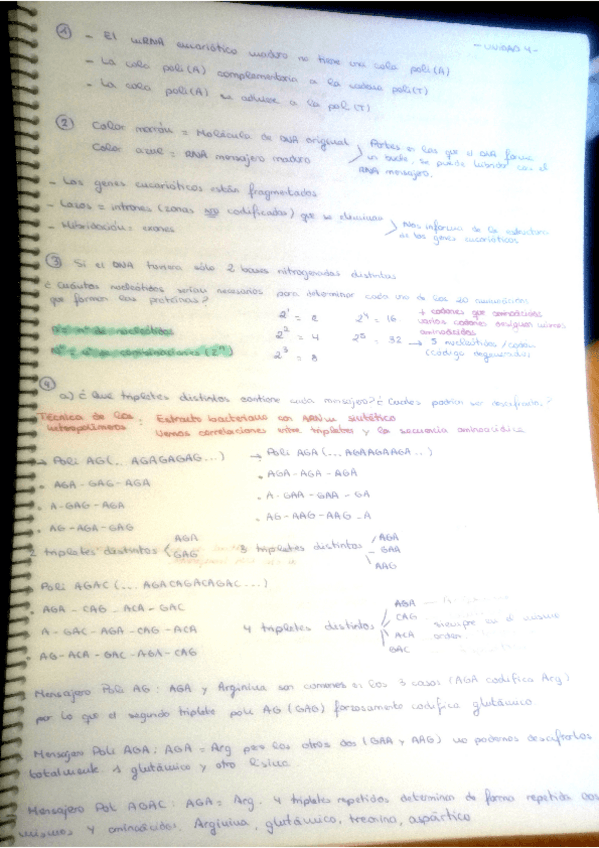 - UNIDAD 4 -
① - El mRNA eucariótico maduro no tiene una cola poli(A)
- La cola poli(A) complementaria a la cadena poli(T)
- La cola poli(A) se adhiere a la pol(T)
② Color marrón = Molécula de DNA original
Color azul = RNA mensajero maduro
Partes en las que el DNA forma
un bucle, se puede hibridar con el
RNA mensajero.
- Los genes eucarióticos están fragmentados
- Lazos = intrones (zonas codificadas) que se eliminan
- Hibridación = exones
Nos informa de la estructura
de los genes eucarióticos
③ Si el DNA tuviera sólo 2 bases nitrogenadas distintas
¿Cuántos nucleótidos serían necesarios para determinar cada uno de los 20 aminoácidos
que forman las proteínas?
2¹ = 2
2² = 4
2³ = 8
2⁴ = 16
2⁵ = 32 → 5 nucleótidos/codón
(código degenerado)
+ codones que aminoácidos
varios codones mismos
aminoácidos
nº de nucleótidos
nº de combinaciones (2ⁿ)
④
a) ¿Que tripletes distintos contiene cada mensajero? ¿Cuales podrían ser descifrados?
Técnica de los
heteropolímeros : Extracto bacteriano con ARNm sintético
Vemos correlaciones entre tripletes y la secuencia aminoacídica
→ Poli AG (... AGAGAGAG...)
• AGA - GAG - AGA
• A - GAG - AGA
• AG - AGA - GAG
2 tripletes distintos AGA
GAG
→ Poli AGA (... AGAAGAAGA...)
• AGA - AGA - AGA
• A - GAA - GAA - GA
• AG - AAG - AAG - A
3 tripletes distintos AGA
GAA
AAG
→ Poli AGAC (... AGACAGACAGAC...)
• AGA - CAG - ACA - GAC
A - GAC - AGA - CAG - ACA
• AG - ACA - GAC - AGA - CAG
4 tripletes distintos AGA
CAG
ACA
GAC
siempre en el mismo
orden
Mensajero Poli AG: AGA y Arginina son comunes en los 3 casos (AGA codifica Arg)
por lo que el segundo triplete poli AG (GAG) forzosamente codifica glutámico.
Mensajero Poli AGA: AGA = Arg pero los otros dos (GAA y AAG) no podemos descifrarlos
totalmente. 1 glutámico y otro lisina.
Mensajero Poli AGAC: AGA = Arg. 4 tripletes repetidos determinan de forma repetida los
mismos 4 aminoácidos. Arginina, glutámico, treonina, aspártico